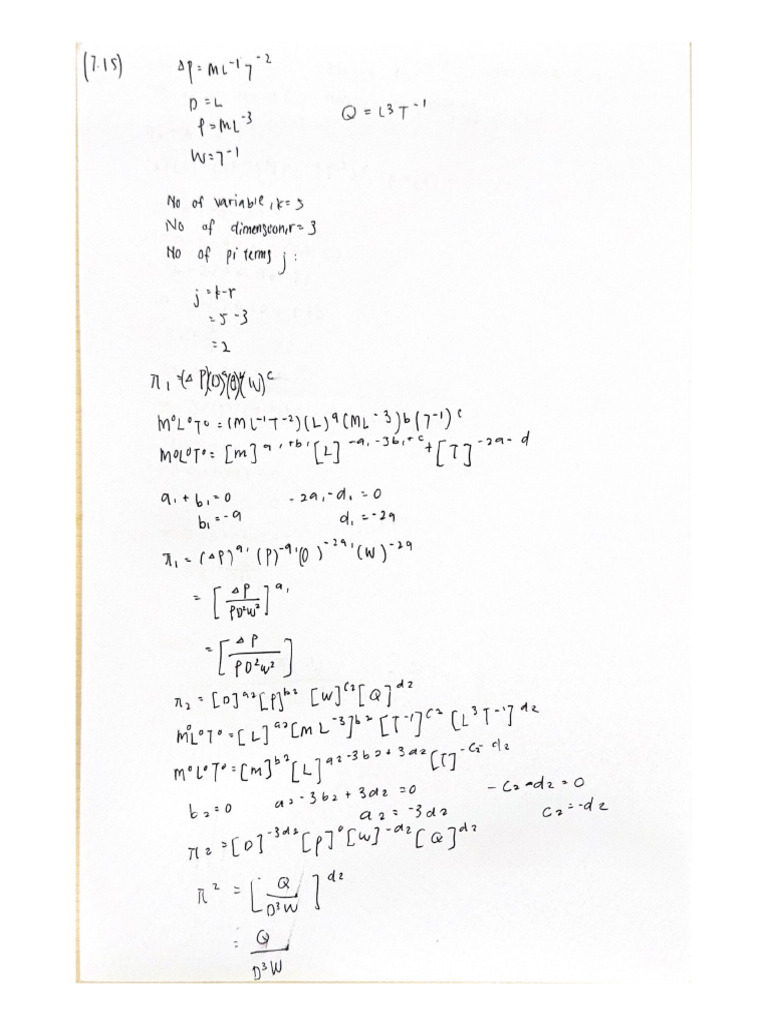 (7.15) ΔP = ML⁻¹T⁻²
D = L
ρ = ML⁻³
Q = L³T⁻¹
W = T⁻¹
No of variable, k = 5
No of dimension, r = 3
No of pi terms j :
j = k-r
= 5-3
= 2
π₁ = (ΔP)(D)ᵃ(ρ)ᵇ(W)ᶜ
M⁰L⁰T⁰ = (ML⁻¹T⁻²)(L)ᵃ(ML⁻³)ᵇ(T⁻¹)ᶜ
M⁰L⁰T⁰ = [M]^(a₁+b₁) [L]^(-a₁-3b₁+c) + [T]^(-2a-d)
a₁ + b₁ = 0 -2a₁-d₁ = 0
b₁ = -a d₁ = -2a
π₁ = (ΔP)^(a₁) (ρ)^(-a₁) (D)^(-2a₁) (W)^(-2a)
= [ΔP / ρD²W²]^(a₁)
= [ΔP / ρD²W²]
π₂ = [D]^(a2) [ρ]^(b2) [W]^(c2) [Q]^(d2)
M⁰L⁰T⁰ = [L]^(a2) [ML⁻³]^(b2) [T⁻¹]^(c2) [L³T⁻¹]^(d2)
M⁰L⁰T⁰ = [M]^(b2) [L]^(a2-3b2+3d2) [T]^(-c2-d2)
b2 = 0 a2-3b2+3d2 = 0 -c2-d2 = 0
a2 = -3d2 c2 = -d2
π2 = [D]^(-3d2) [ρ]⁰ [W]^(-d2) [Q]^(d2)
π² = [Q / D³W]^(d2)
= Q / D³W